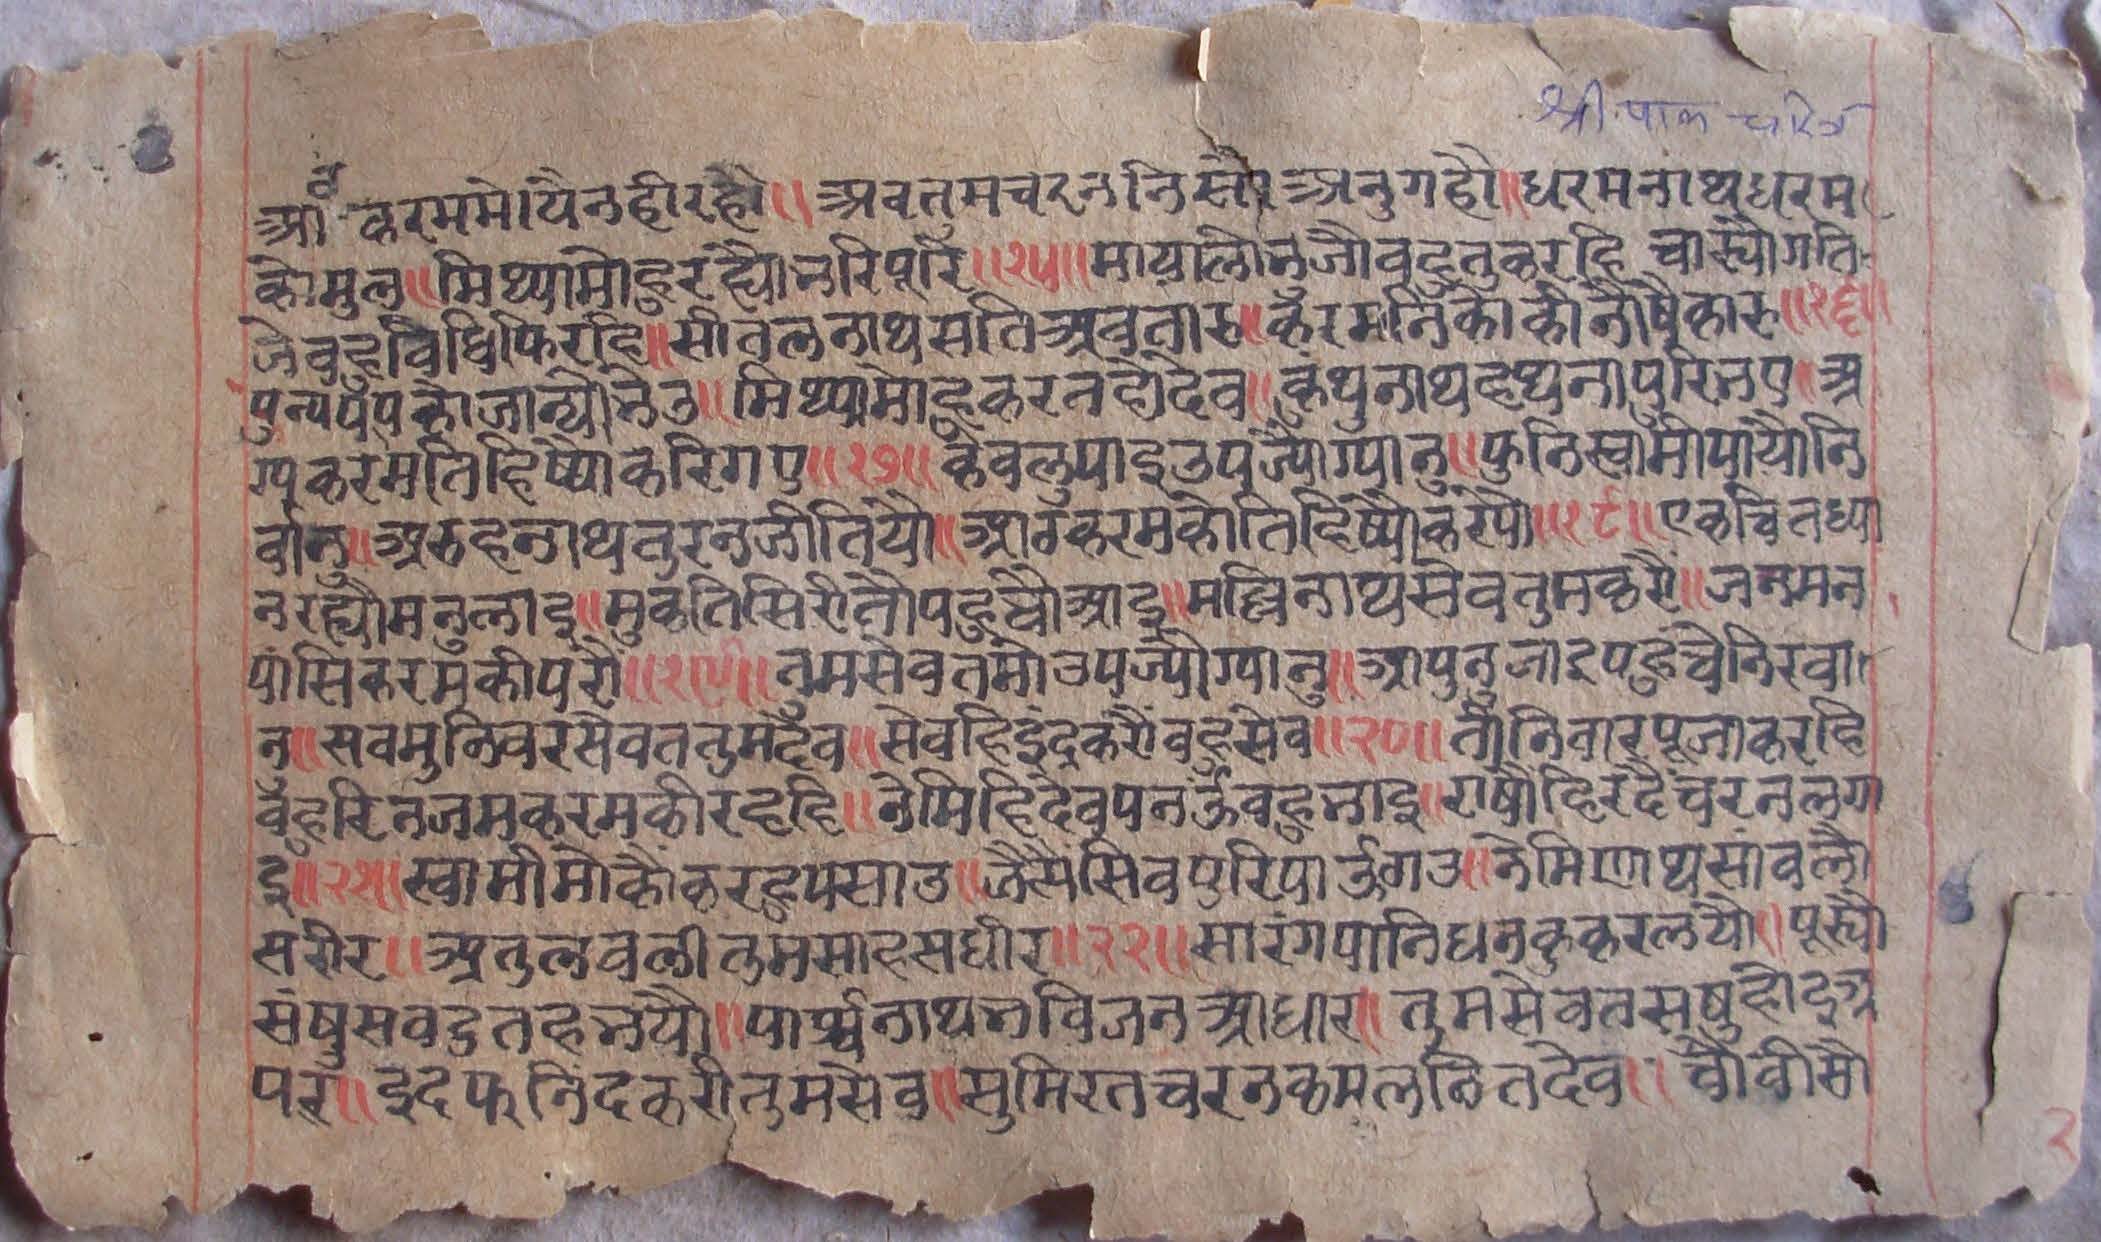 श्रीपाल चरित्र
आठ करममोपैनहीरहौ॥अवतुमचरननिसौअनुगहौ॥धरमनाथधरम
कोमुल॥मिथ्यामोहुरह्यौभरिपूरि॥१५॥मायालीनजीवहुतुकरहि चास्यौगति
जेवहुविधिफिरहि॥सीतलनाथसतिअवतारु॥करमनिकौकीनौषैकारु॥१६॥
पुन्यपापकौजान्यौभेउ॥मिथ्यामोहकरतहौदेव॥कुंथुनाथहथनापुरिभए॥अ
ग्यकरमतिहिष्यौकरिगए॥१७॥केवलुपाइउपज्यौग्यानु॥फुनिस्वामीपायौनि
र्वानु॥अरुहनाथतुरनजीतियौ॥आठकरमकौतिहिष्यौकरेयौ॥१८॥एकचितध्या
नरह्यौमनुलाइ॥मुकतिसिरीतौपहुचौआइ॥मल्लिनाथसेवतुमकरौ॥जनमन
पासिकरमकीपरौ॥१९॥तुमसेवतमोउपज्यौग्यानु॥आपुनुजाइपहुचैनिरवा
न॥सवमुनिवरसेवततुमदेव॥सेवहिइंद्रकरौवहुसेव॥२०॥तीनिवारपूजाकरहि
वैहरिनजमकरमकीरहहि॥नेमिहिदेवपनऊंवहुभाइ॥राषौहिरदैचरनलगा
इ॥२१॥स्वामीमोकौंकरहुपसाउ॥जैसैसिवपुरिपाऊंगउ॥नेमिणाथसांवलौ
सरीर॥अतुलवलीतुमसाहसधीर॥२२॥सारंगपानिधनकुकरलयौ॥पूस्यौ
संषुसवदुतहभयौ॥पार्श्वनाथभविजनआधार॥तुमसेवतसषुहोइअ
पर॥इंदफनिंदकरीतुमसेव॥सुमिरतचरनकमलनितदेव॥चौवीसौ
२